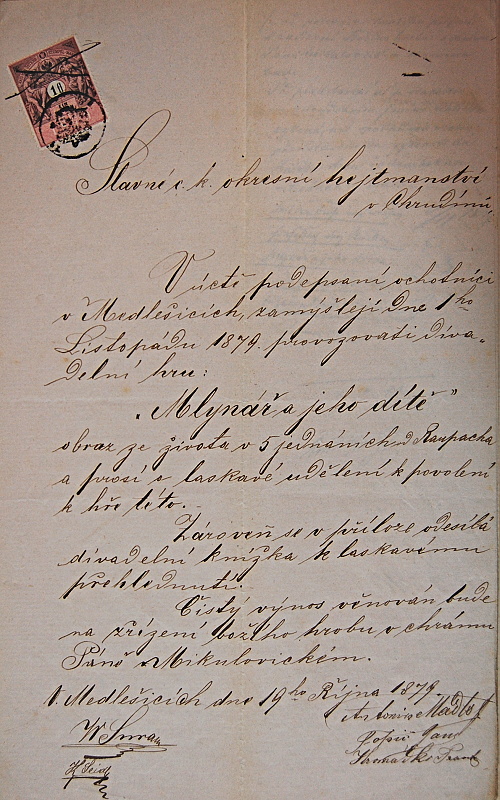 10
Slavné c. k. okresní hejtmanství
v Chrudimi,
V úctě podepsaní ochotníci
v Medlešicích, zamýšlejí dne 1ho
Listopadu 1879. provozovati diva-
delní hru:
„Mlynář a jeho dítě"
obraz ze života v 5 jednáních od Raupacha
a prosí o laskavé udělení k povolení
k hře této.
Zároveň se v příloze odesílá
divadelní knížka k laskavému
přehlednutí.
Čistý výnos věnován bude
na zřízení božího hrobu v chrámu
Páně v Mikulovickém.
V Medlešicích dne 19ho Října 1879
Antonín